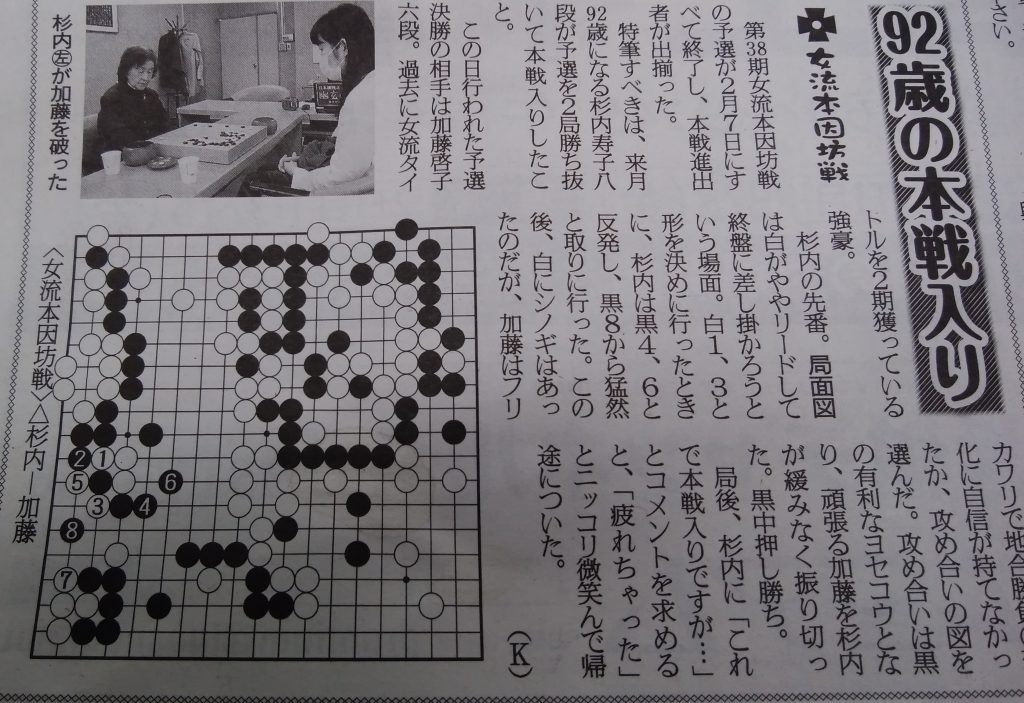 さい。
92歳の本戦入り
女流本因坊戦
第38期女流本因坊戦
の予選が2月7日にす
べて終了し、本戦進出
者が出揃った。
特筆すべきは、来月
92歳になる杉内寿子八
段が予選を2局勝ち抜
いて本戦入りしたこ
と。
この日行われた予選
決勝の相手は加藤啓子
六段。過去に女流タイ
トルを2期獲っている
強豪。
杉内の先番。局面図
は白がややリードして
終盤に差し掛かろうと
いう場面。白1、3と
形を決めに行ったとき
に、杉内は黒4、6と
反発し、黒8から猛然
と取りに行った。この
後、白にシノギはあっ
たのだが、加藤はフリ
カワリで地合勝負の
化に自信が持てなかっ
たか、攻め合いの図を
選んだ。攻め合いは黒
の有利なヨセコウとな
り、頑張る加藤を杉内
が緩みなく振り切っ
た。黒中押し勝ち。
局後、杉内に「これ
で本戦入りですが…」
とコメントを求める
と、「疲れちゃった」
とニッコリ微笑んで帰
途についた。
(K)
杉内㊧が加藤を破った
〈女流本因坊戦〉△杉内―加藤
2 1
5 6
3 4
8
7